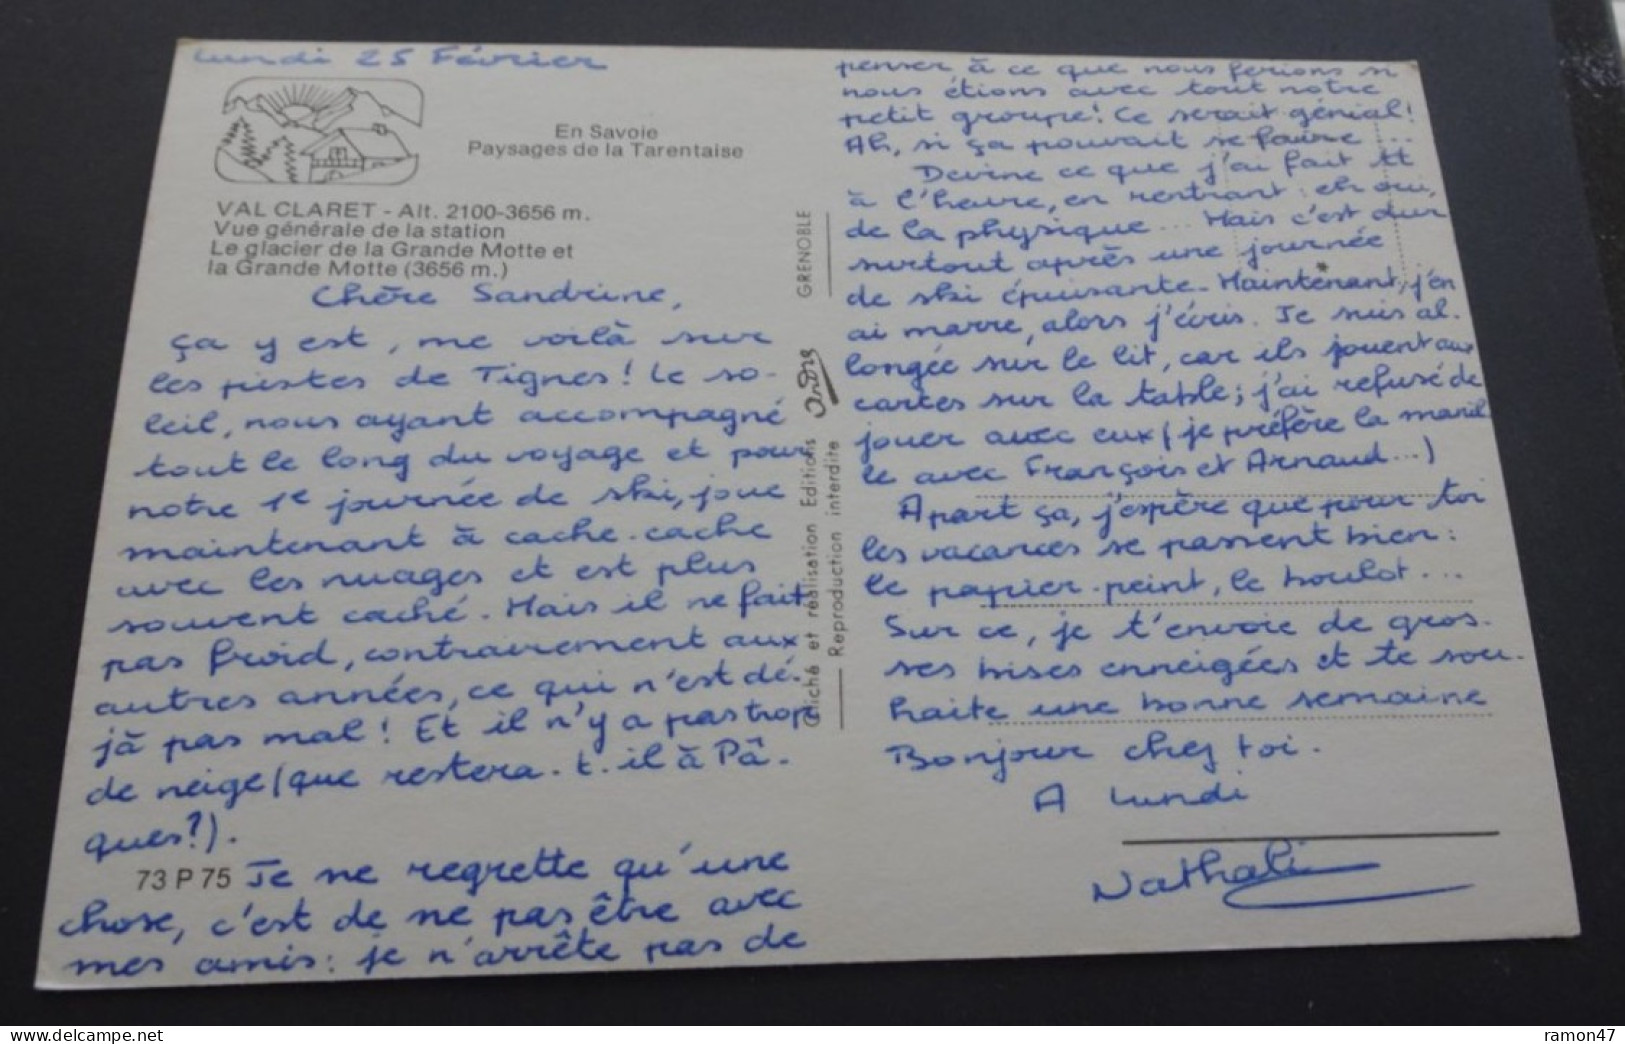 Lundi 25 Février
En Savoie
Paysages de la Tarentaise
VAL CLARET - Alt. 2100-3656 m.
Vue générale de la station
Le glacier de la Grande Motte et
la Grande Motte (3656 m.)
Chère Sandrine,
ça y est, me voilà sur
les pistes de Tignes! Le so-
leil, nous ayant accompagné
tout le long du voyage et pour
notre 1e journée de ski, joue
maintenant à cache-cache
avec les nuages et est plus
souvent caché. Mais il ne fait
pas froid, contrairement aux
autres années, ce qui n'est dé-
jà pas mal! Et il n'y a pas trop
de neige (que restera-t-il à Pâ-
ques?).
73 P 75
Je ne regrette qu'une
chose, c'est de ne pas être avec
mes amis: je n'arrête pas de
GRENOBLE
André
Cliché et réalisation Editions
Reproduction interdite
penser à ce que nous ferions si
nous étions avec tout notre
petit groupe! Ce serait génial!
Ah, si ça pouvait se faire...
Devine ce que j'ai fait tt
à l'heure, en rentrant: eh oui,
de la physique... Mais c'est dur
surtout après une journée
de ski épuisante. Maintenant, j'en
ai marre, alors j'écris. Je suis al-
longée sur le lit, car ils jouent aux
cartes sur la table; j'ai refusé de
jouer avec eux (je préfère la manil
le avec François et Arnaud...)
A part ça, j'espère que pour toi
les vacances se passent bien:
le papier-peint, le boulot...
Sur ce, je t'envoie de gros-
ses bises enneigées et te sou-
haite une bonne semaine
Bonjour chez toi.
A Lundi
Nathalie
https://www.delcampe.net
ramon47